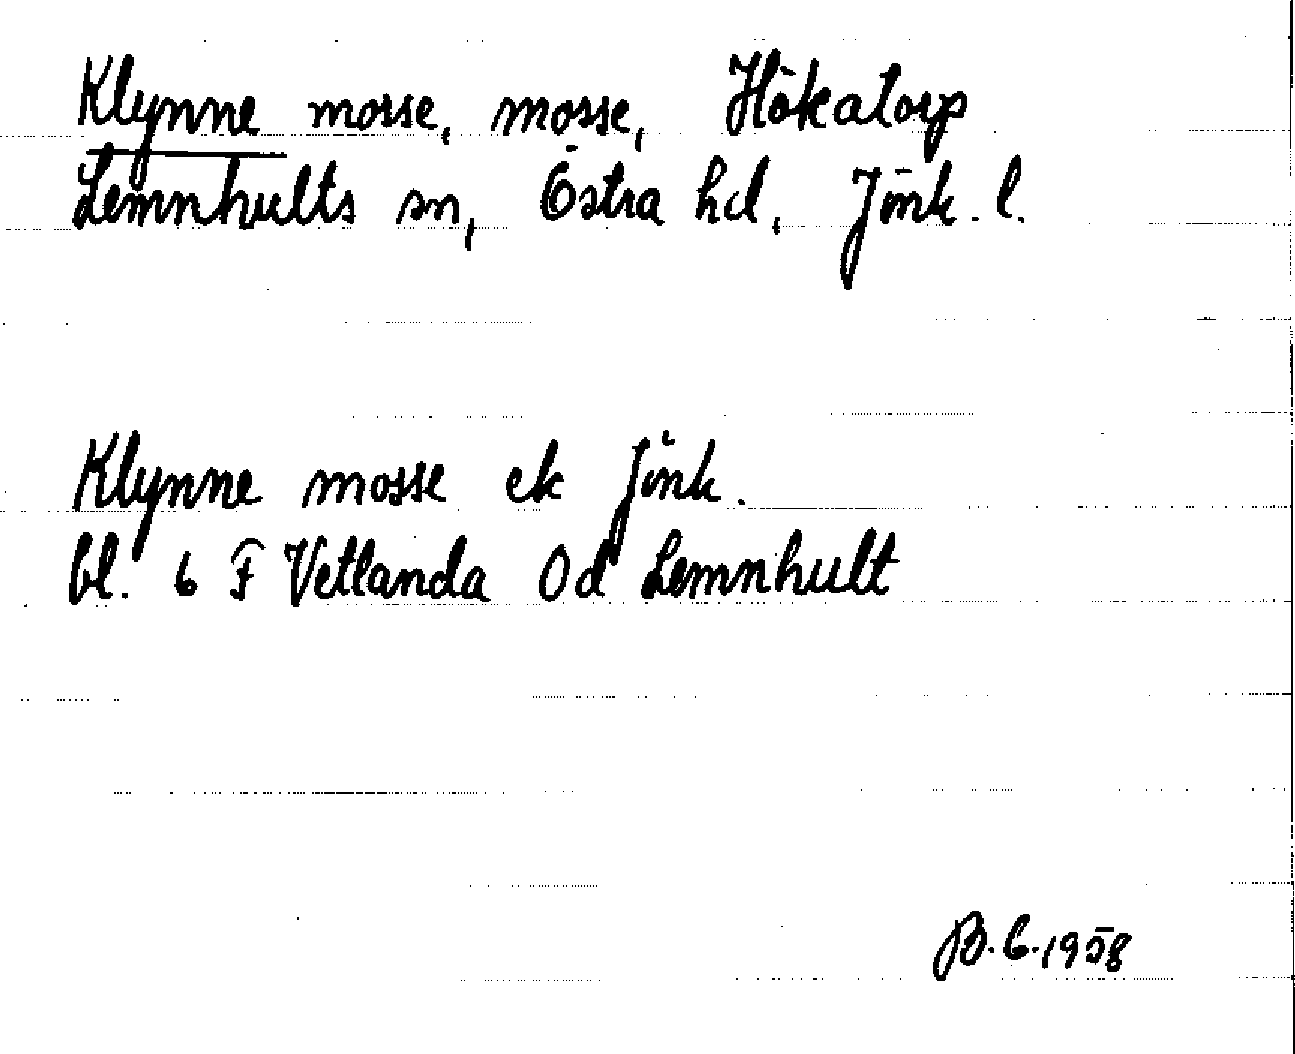 Klynne mosse, mosse, Håkatorp
Lemnhults sn, Östra hd, Jönk. l.
Klynne mosse ek Jönk.
bl. 6 F Vetlanda 0d Lemnhult
B.G. 1958